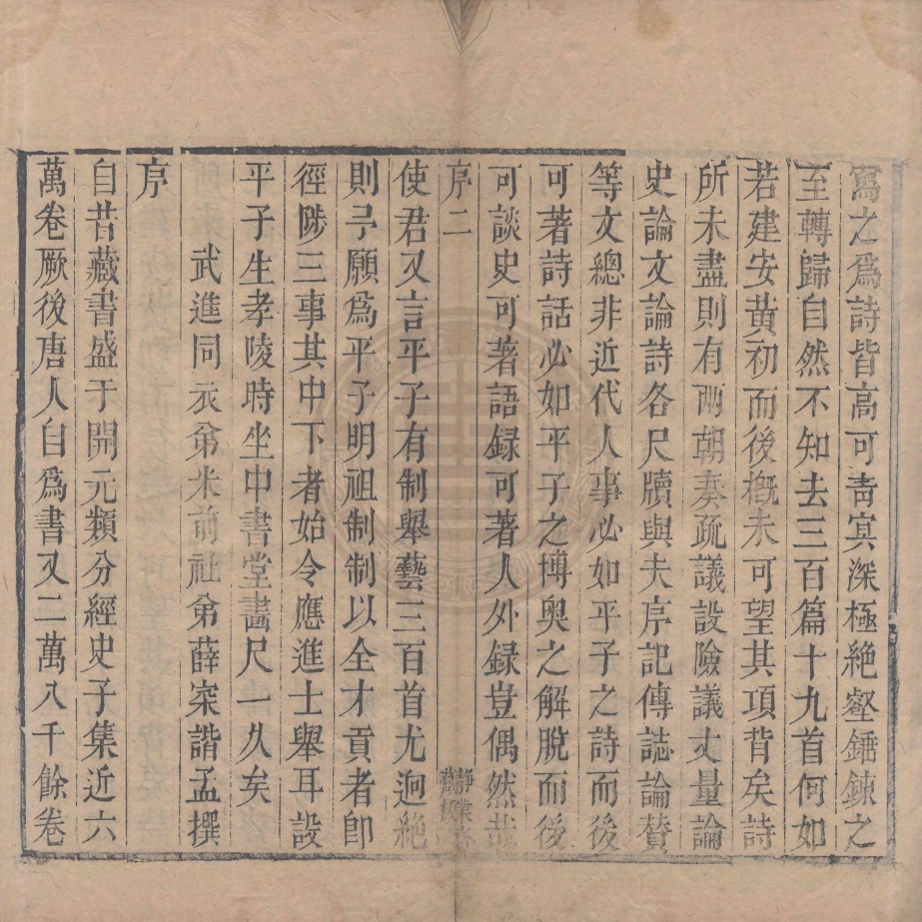 寫之爲詩皆高可靑寞深極絶壑錘鍊之
至轉歸自然不知去三百篇十九首何如
若建安黃初而後槪未可望其項背矣詩
所未盡則有兩朝奏疏議設險議丈量論
史論文論詩各尺牘與夫序記傳誌論贊
等文總非近代人事必如平子之詩而後
可著詩話必如平子之博奧之解脫而後
可談史可著語録可著人外録豈偶然哉
序二
使君又言平子有制舉藝三百首尤迥絶
則予願爲平子明祖制制以全才貢者即
徑陟三事其中下者始令應進士舉耳設
平子生孝陵時坐中書堂畵尺一久矣
武進同衣弟米前社弟薛寀諧孟撰
序
自昔藏書盛于開元類分經史子集近六
萬卷厥後唐人自爲書又二萬八千餘卷